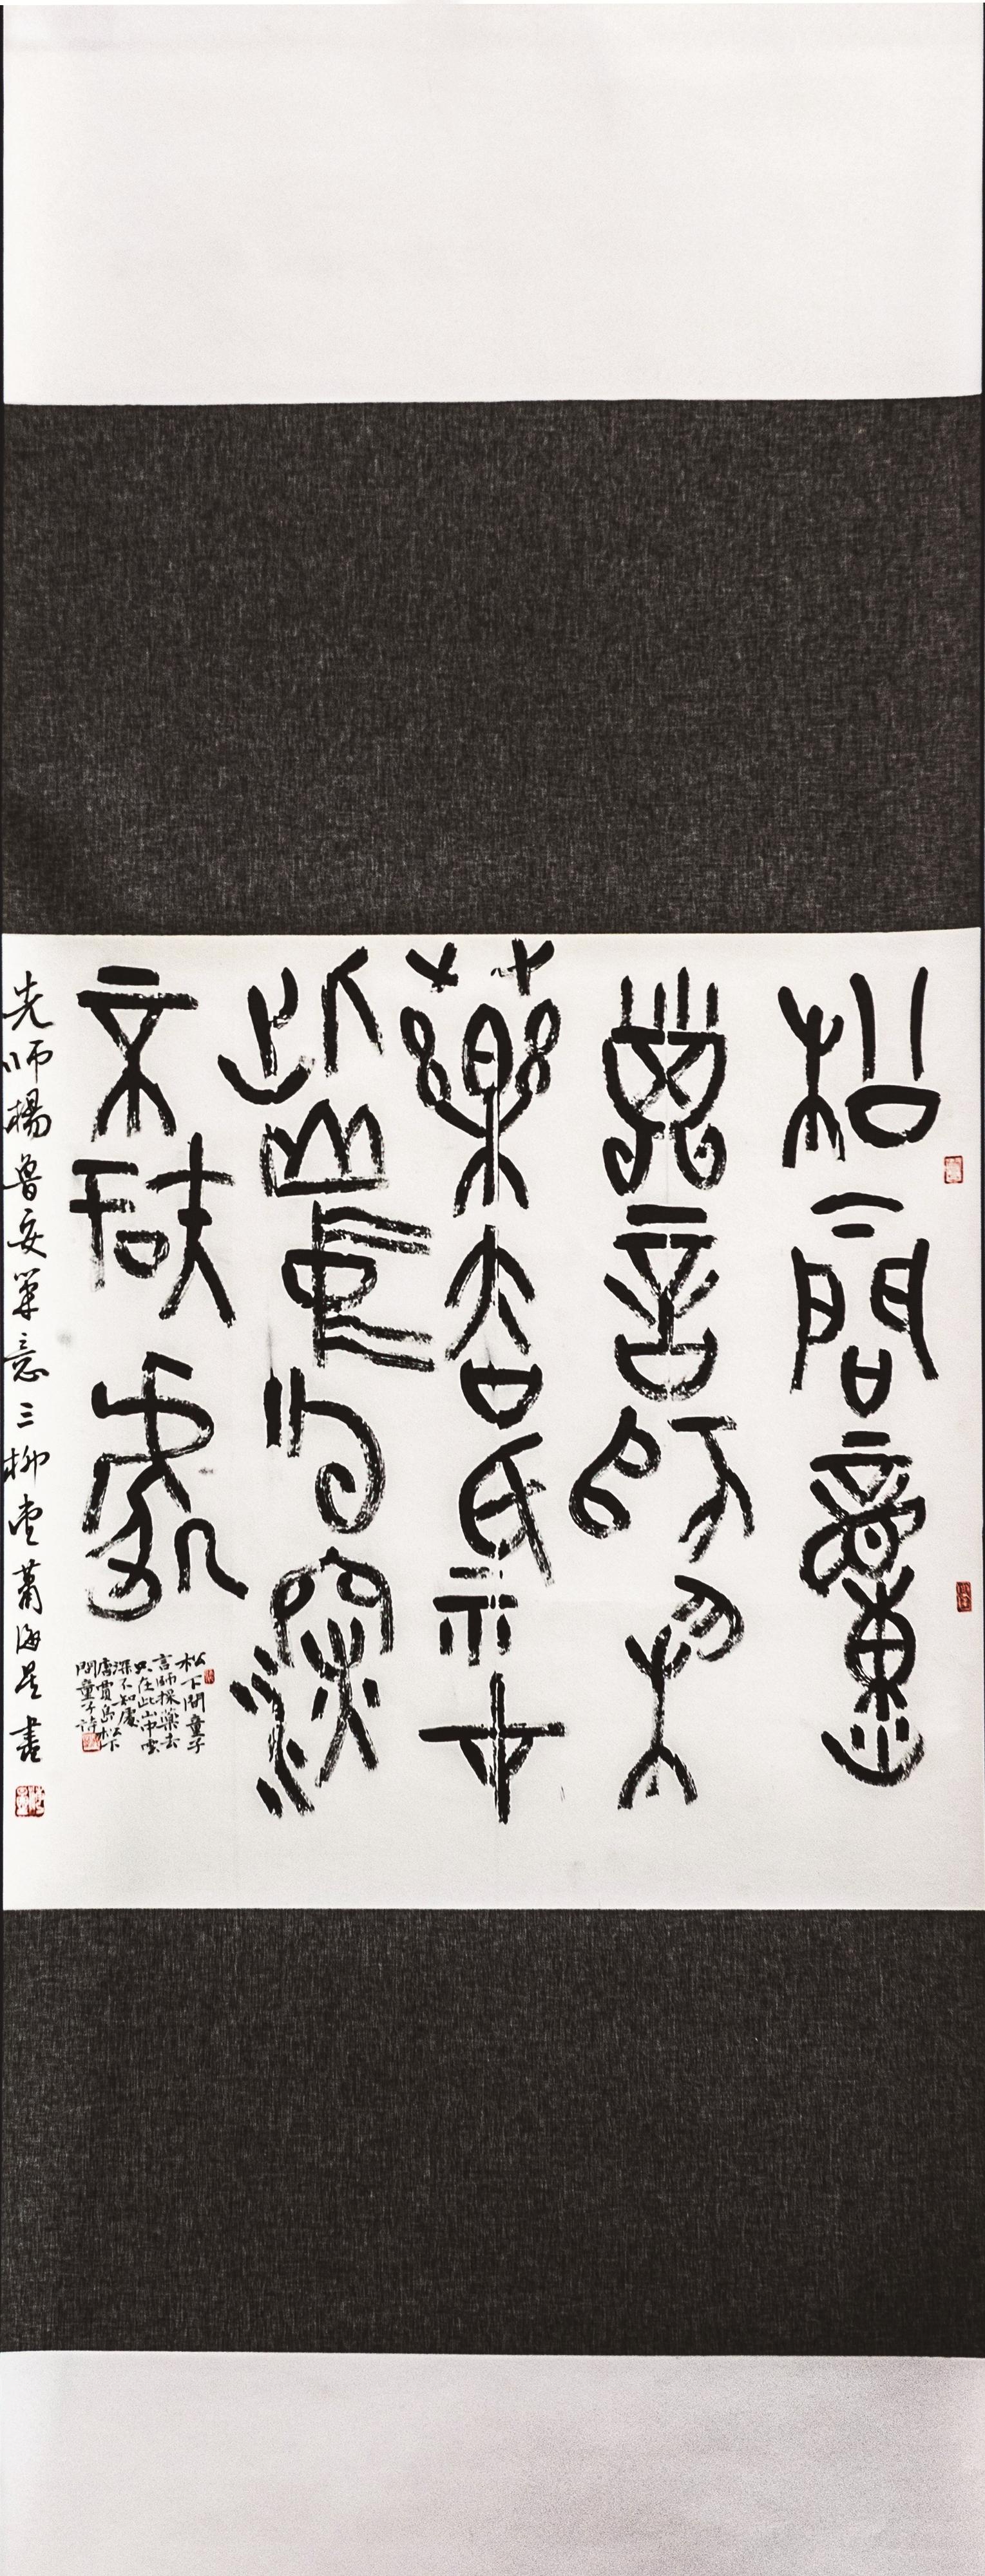 松下問童
子言師采
藥去只在
此山中雲深
不知處
松下問童子
言師採藥去
只在此山中雲
深不知處
唐賈島松下
問童子詩
先師楊魯安筆意三柳堂蕭海芒書